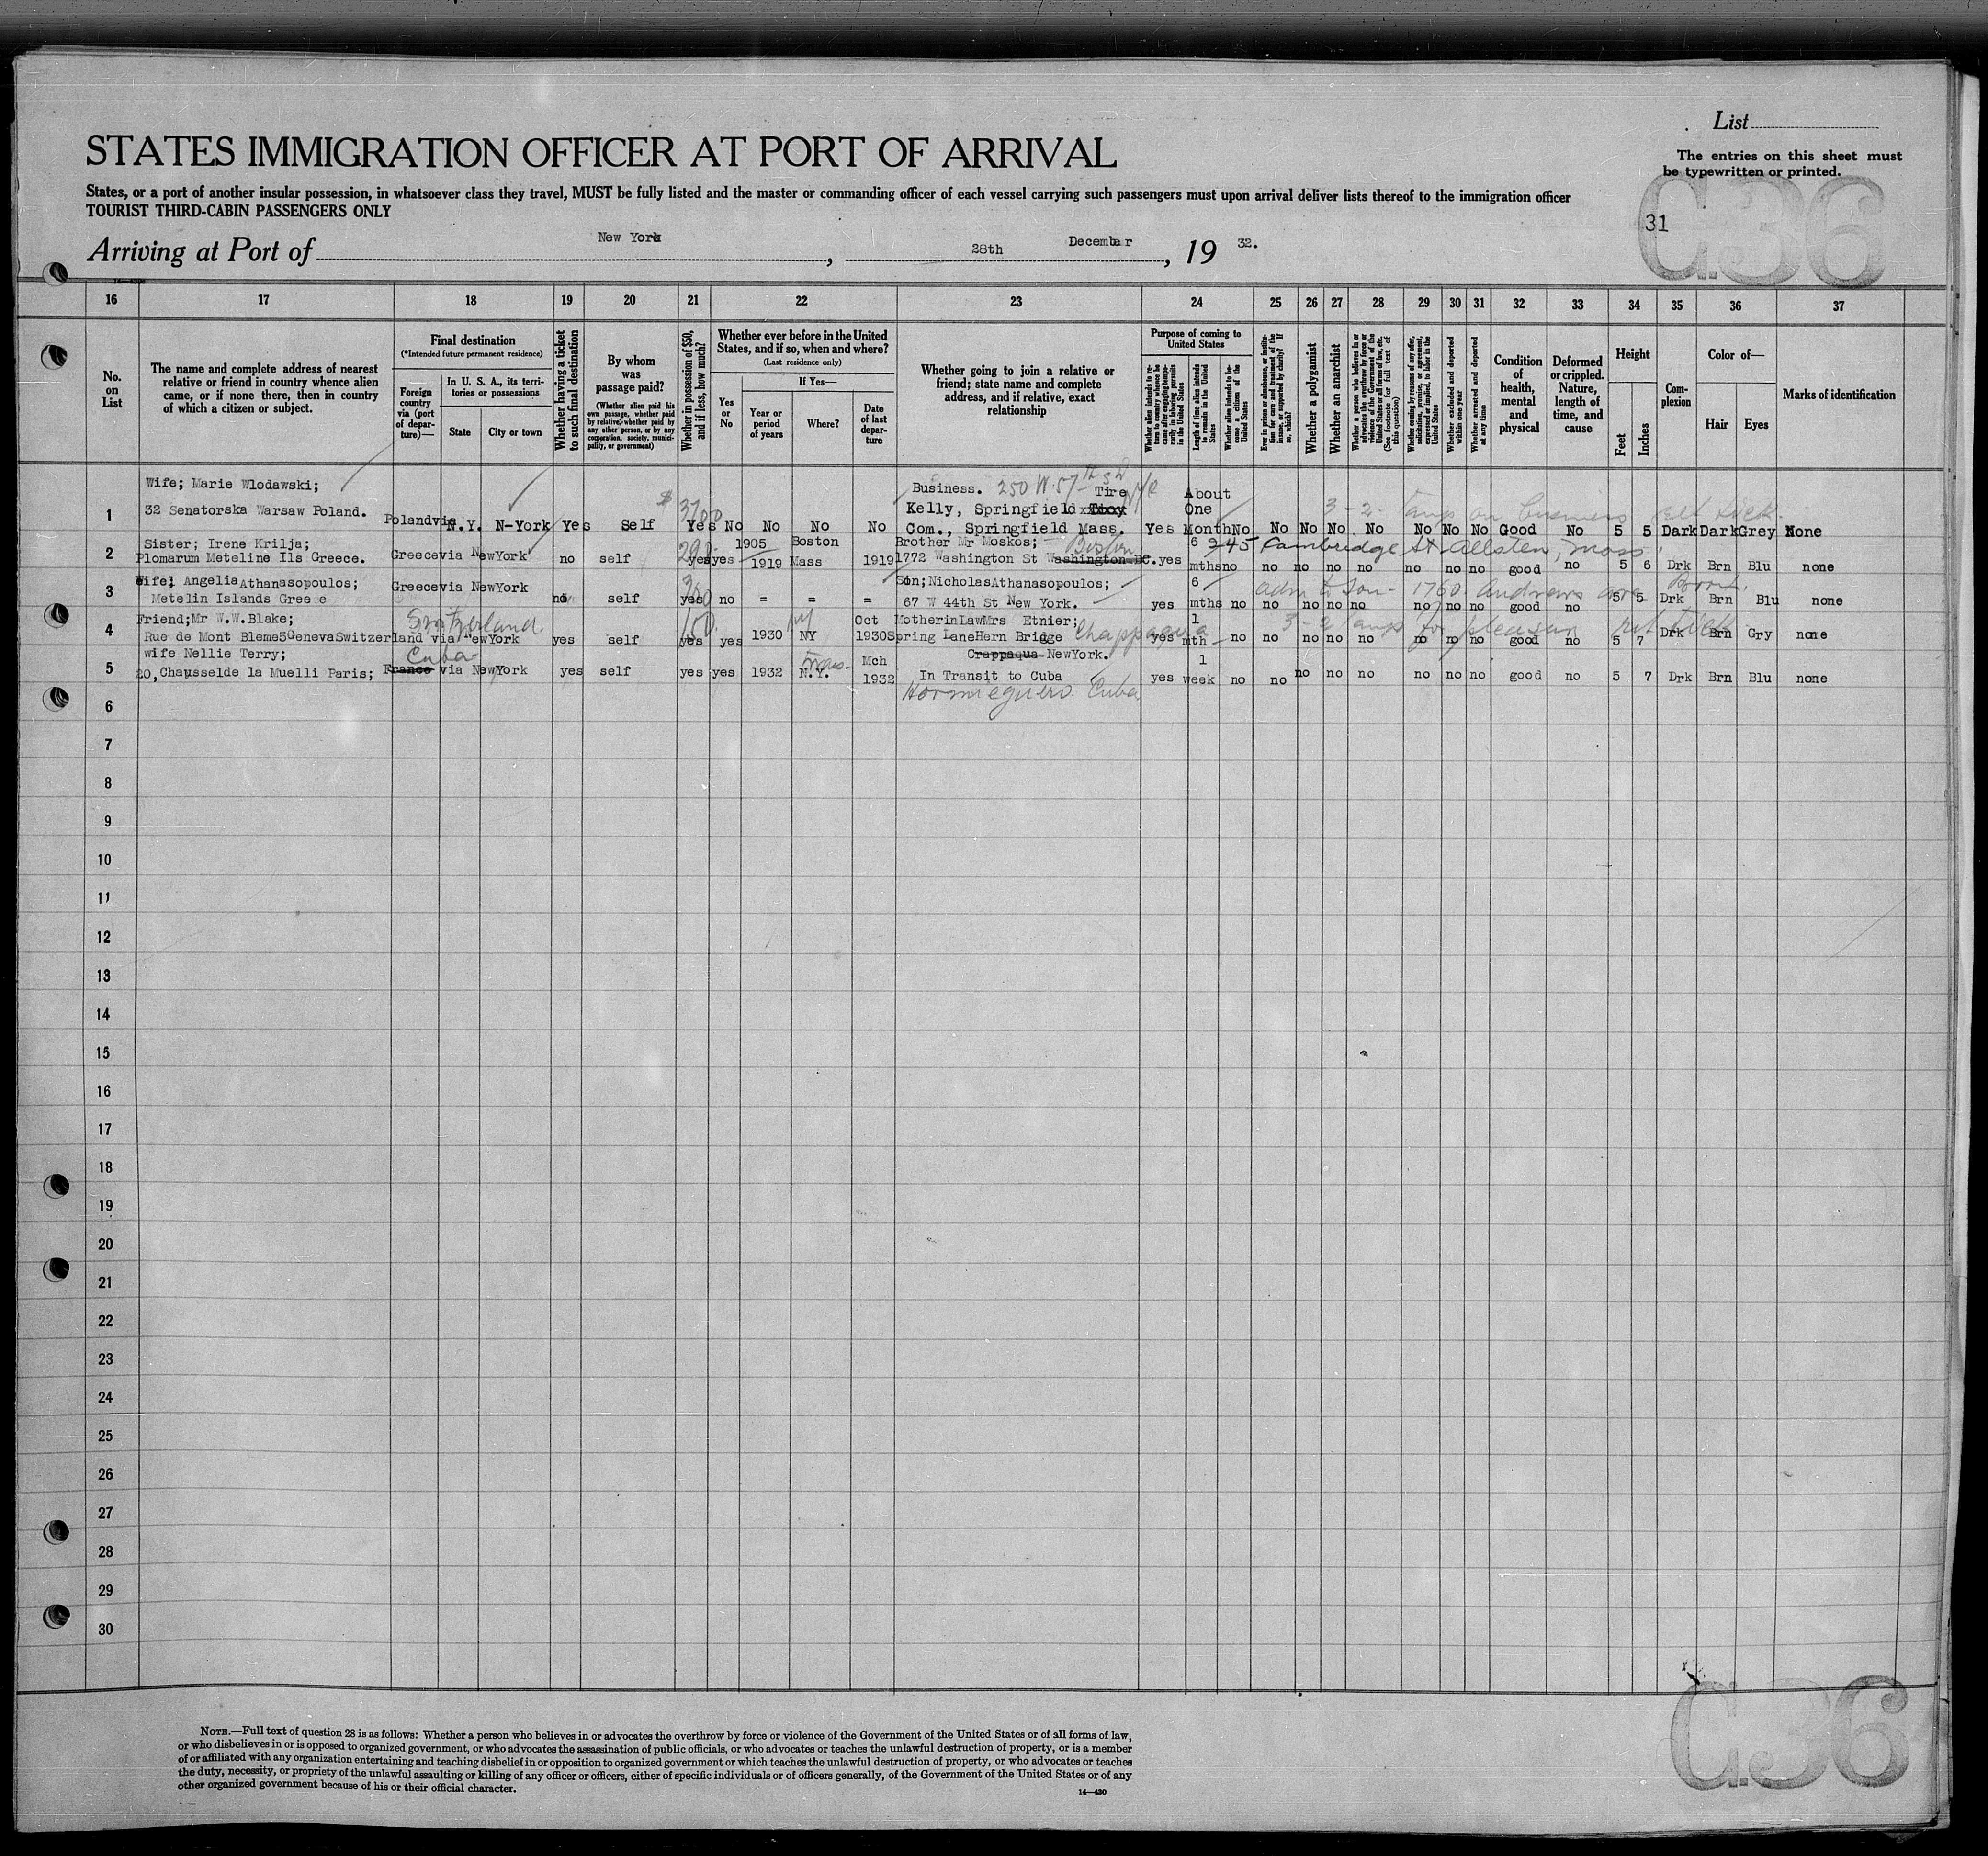 List
STATES IMMIGRATION OFFICER AT PORT OF ARRIVAL
The entries on this sheet must
be typewritten or printed.
States, or a port of another insular possession, in whatsoever class they travel, MUST be fully listed and the master or commanding officer of each vessel carrying such passengers must upon arrival deliver lists thereof to the immigration officer
TOURIST THIRD-CABIN PASSENGERS ONLY
C.36
31
Arriving at Port of New York, 28th December, 19 32.
16 17 18 19 20 21 22 23 24 25 26 27 28 29 30 31 32 33 34 35 36 37
No.
on
List
The name and complete address of nearest
relative or friend in country whence alien
came, or if none there, then in country
of which a citizen or subject.
Final destination
(*Intended future permanent residence)
Foreign
country
via (port
of depar-
ture)—
In U. S. A., its terri-
tories or possessions
State
City or town
Whether having a ticket
to such final destination
By whom
was
passage paid?
(Whether alien paid his
own passage, whether paid
by relative, whether paid by
any other person, or by any
corporation, society, munici-
pality, or government)
Whether in possession of $50,
and if less, how much?
Whether ever before in the United
States, and if so, when and where?
(Last residence only)
Yes
or
No
If Yes—
Year or
period
of years
Where?
Date
of last
depar-
ture
Whether going to join a relative or
friend; state name and complete
address, and if relative, exact
relationship
Purpose of coming to
United States
Whether alien intends to re-
turn to country whence he
came after engaging tempo-
rarily in laboring pursuits
in the United States
Length of time alien intends
to remain in the United
States
Whether alien intends to be-
come a citizen of the
United States
Ever in prison or almshouse, or institu-
tion for care and treatment of the
insane, or supported by charity? If
so, which?
Whether a polygamist
Whether an anarchist
Whether a person who believes in or
advocates the overthrow by force or
violence of the Government of the
United States or all forms of law, etc.
(See footnote for full text of
this question)
Whether coming by reasons of any offer,
solicitation, promise, or agreement,
expressed or implied, to labor in the
United States
Whether excluded and deported
within one year
Whether arrested and deported
at any time
Condition
of
health,
mental
and
physical
Deformed
or crippled.
Nature,
length of
time, and
cause
Height
Feet
Inches
Com-
plexion
Color of—
Hair
Eyes
Marks of identification
Wife; Marie Wlodawski; Business. 250 W. 57th St Tire NYC About
1 32 Senatorska Warsaw Poland. Kelly, Springfield One 3-2-
Poland via N.Y. N-York Yes Self $ Yes No No No No Com., Springfield Mass. Yes Month No No No No No No No No Good No 5 5 Dark Dark Grey None
2 Sister; Irene Krilja; 1905 Boston Brother Mr Moskos; Boston 6 245 Cambridge St. Allston, Mass.
Plomarum Meteline Ils Greece. Greece via NewYork no self 200 yes yes 1919 Mass 1919 1772 Washington St Washington DC. yes mths no no no no no no no no good no 5 6 Drk Brn Blu none
3 Wife; Angelia Athanasopoulos; Greece via NewYork 300 Son; Nicholas Athanasopoulos; 6 adm to Son - 1760 Andrews ave Bronx.
Metelin Islands Greece no self yes no = = = 67 W 44th St New York. yes mths no no no no no no no no good no 5 5 Drk Brn Blu none
4 Friend; Mr W.W.Blake; Switzerland 150. Oct Mother in Law Mrs Etnier; 1 3-2 for pleasure
Rue de Mont Bleme5 Geneva Switzerland via NewYork yes self yes yes 1930 NY 1930 Spring Lane Hern Bridge Chappaqua yes mth no no no no no no no no good no 5 7 Drk Brn Gry none
wife Nellie Terry; Cuba Trans. Mch Crappaqua NewYork. 1
5 20, Chausselde la Muelli Paris; France via NewYork yes self yes yes 1932 N.Y. 1932 In Transit to Cuba yes week no no no no no no no no good no 5 7 Drk Brn Blu none
Hormieguero Cuba
6
7
8
9
10
11
12
13
14
15
16
17
18
19
20
21
22
23
24
25
26
27
28
29
30
NOTE.—Full text of question 28 is as follows: Whether a person who believes in or advocates the overthrow by force or violence of the Government of the United States or of all forms of law,
or who disbelieves in or is opposed to organized government, or who advocates the assassination of public officials, or who advocates or teaches the unlawful destruction of property, or is a member
of or affiliated with any organization entertaining and teaching disbelief in or opposition to organized government or which teaches the unlawful destruction of property, or who advocates or teaches
the duty, necessity, or propriety of the unlawful assaulting or killing of any officer or officers, either of specific individuals or of officers generally, of the Government of the United States or of any
other organized government because of his or their official character.
14—430
C.36